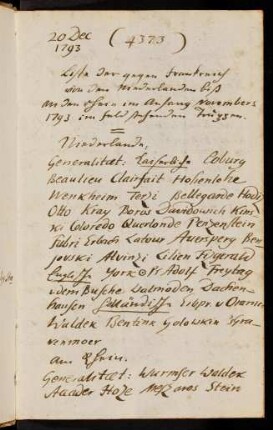 20 Dec
1793
(4373)
Liste der gegen Franckreich
von den Niederlanden biß
an den Rhein im Anfang Novembers
1793 im Feld stehenden Truppen.
Niederlande.
Generalitæt. Kaiserliche Coburg
Beaulieu Clairfait Hohenlohe
Wenkheim Terzi Bellegarde
Otto Kray Boros Davidowich
Coloredo
Erbach Latour Auersperg
Alvinzi Lilien
Englische York Pr Adolf Freytag
Busche Walmoden Dachen-
hausen Holländische Erbpr v Oranien
Waldek Bentink Golowkin
am Rhein.
Generalitæt: Wurmser Waldek
Hoze Meszaros Stein